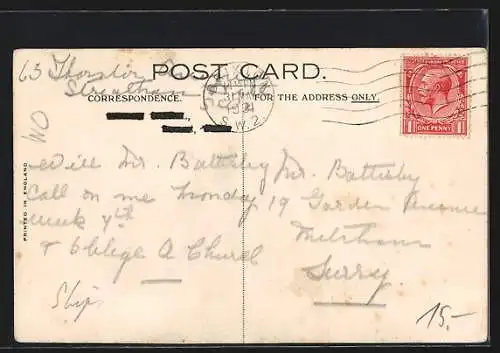 63
POST CARD.
Streatham
CORRESPONDENCE.
FOR THE ADDRESS ONLY.
S.W.2
ONE PENNY
Will Mr. Battersby
call on me Monday
week 4th
& Oblige A Church
Mr. Battersby
19 Garden Avenue
Mitcham
Surry.
PRINTED IN ENGLAND
15.-